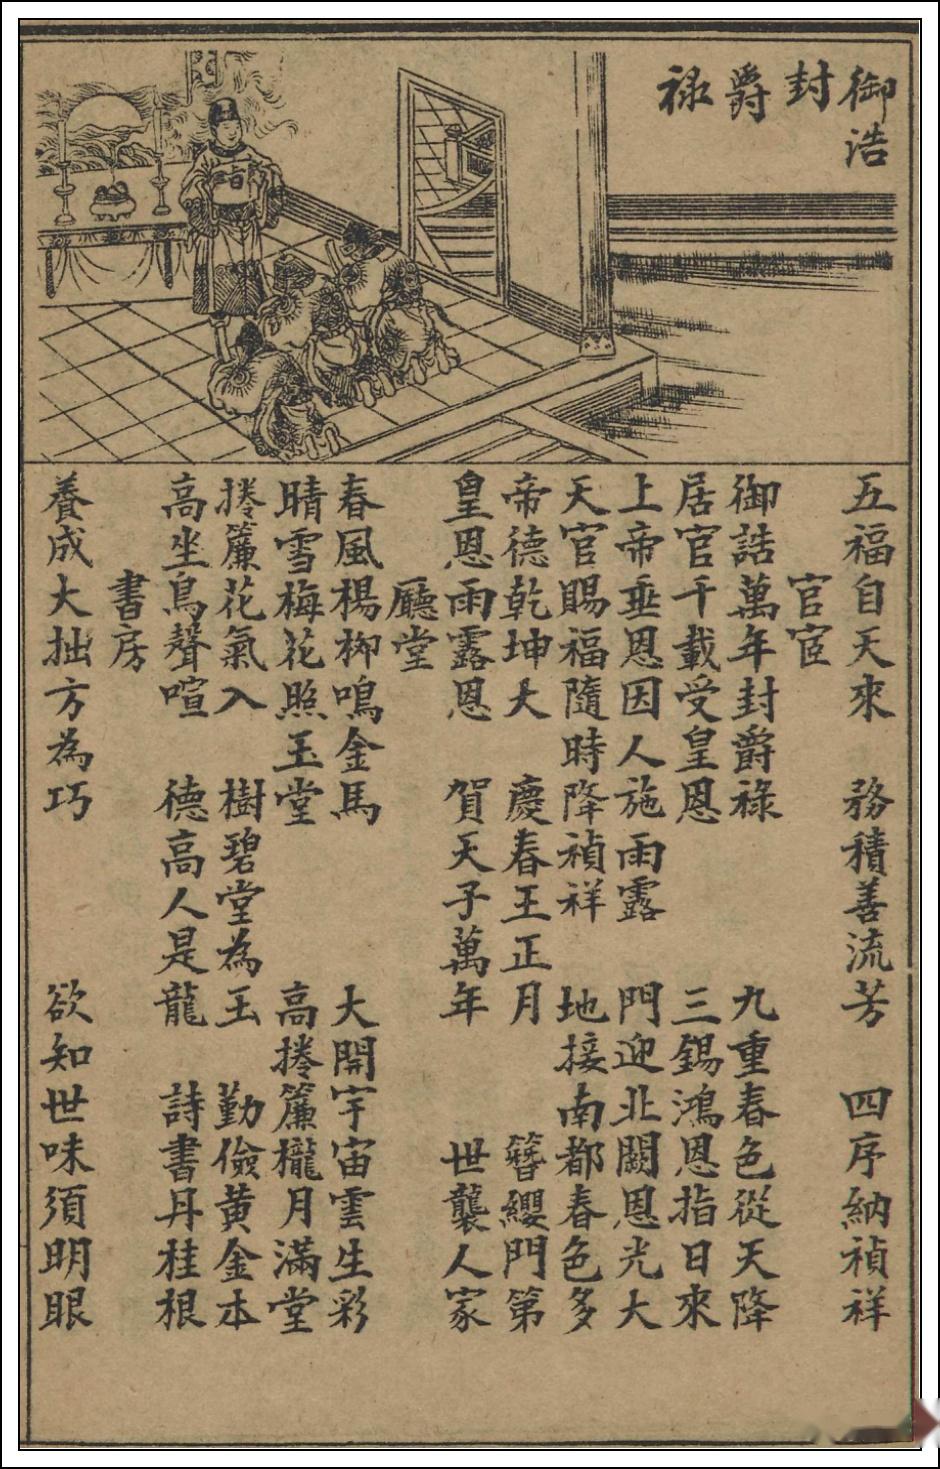 御浩
封
爵
祿
旨
五福自天來　務積善流芳　四序納禎祥
官宦
御誥萬年封爵祿　九重春色從天降
居官千載受皇恩　三錫鴻恩指日來
上帝垂恩因人施雨露　門迎北闕恩光大
天官賜福隨時降禎祥　地接南都春色多
帝德乾坤大　慶春王正月　簪纓門第
皇恩雨露恩　賀天子萬年　世襲人家
廳堂
春風楊柳鳴金馬　大開宇宙雲生彩
晴雪梅花照玉堂　高捲簾櫳月滿堂
捲簾花氣入　樹碧堂為玉　勤儉黃金本
高坐鳥聲喧　德高人是龍　詩書丹桂根
書房
養成大拙方為巧　欲知世味須明眼